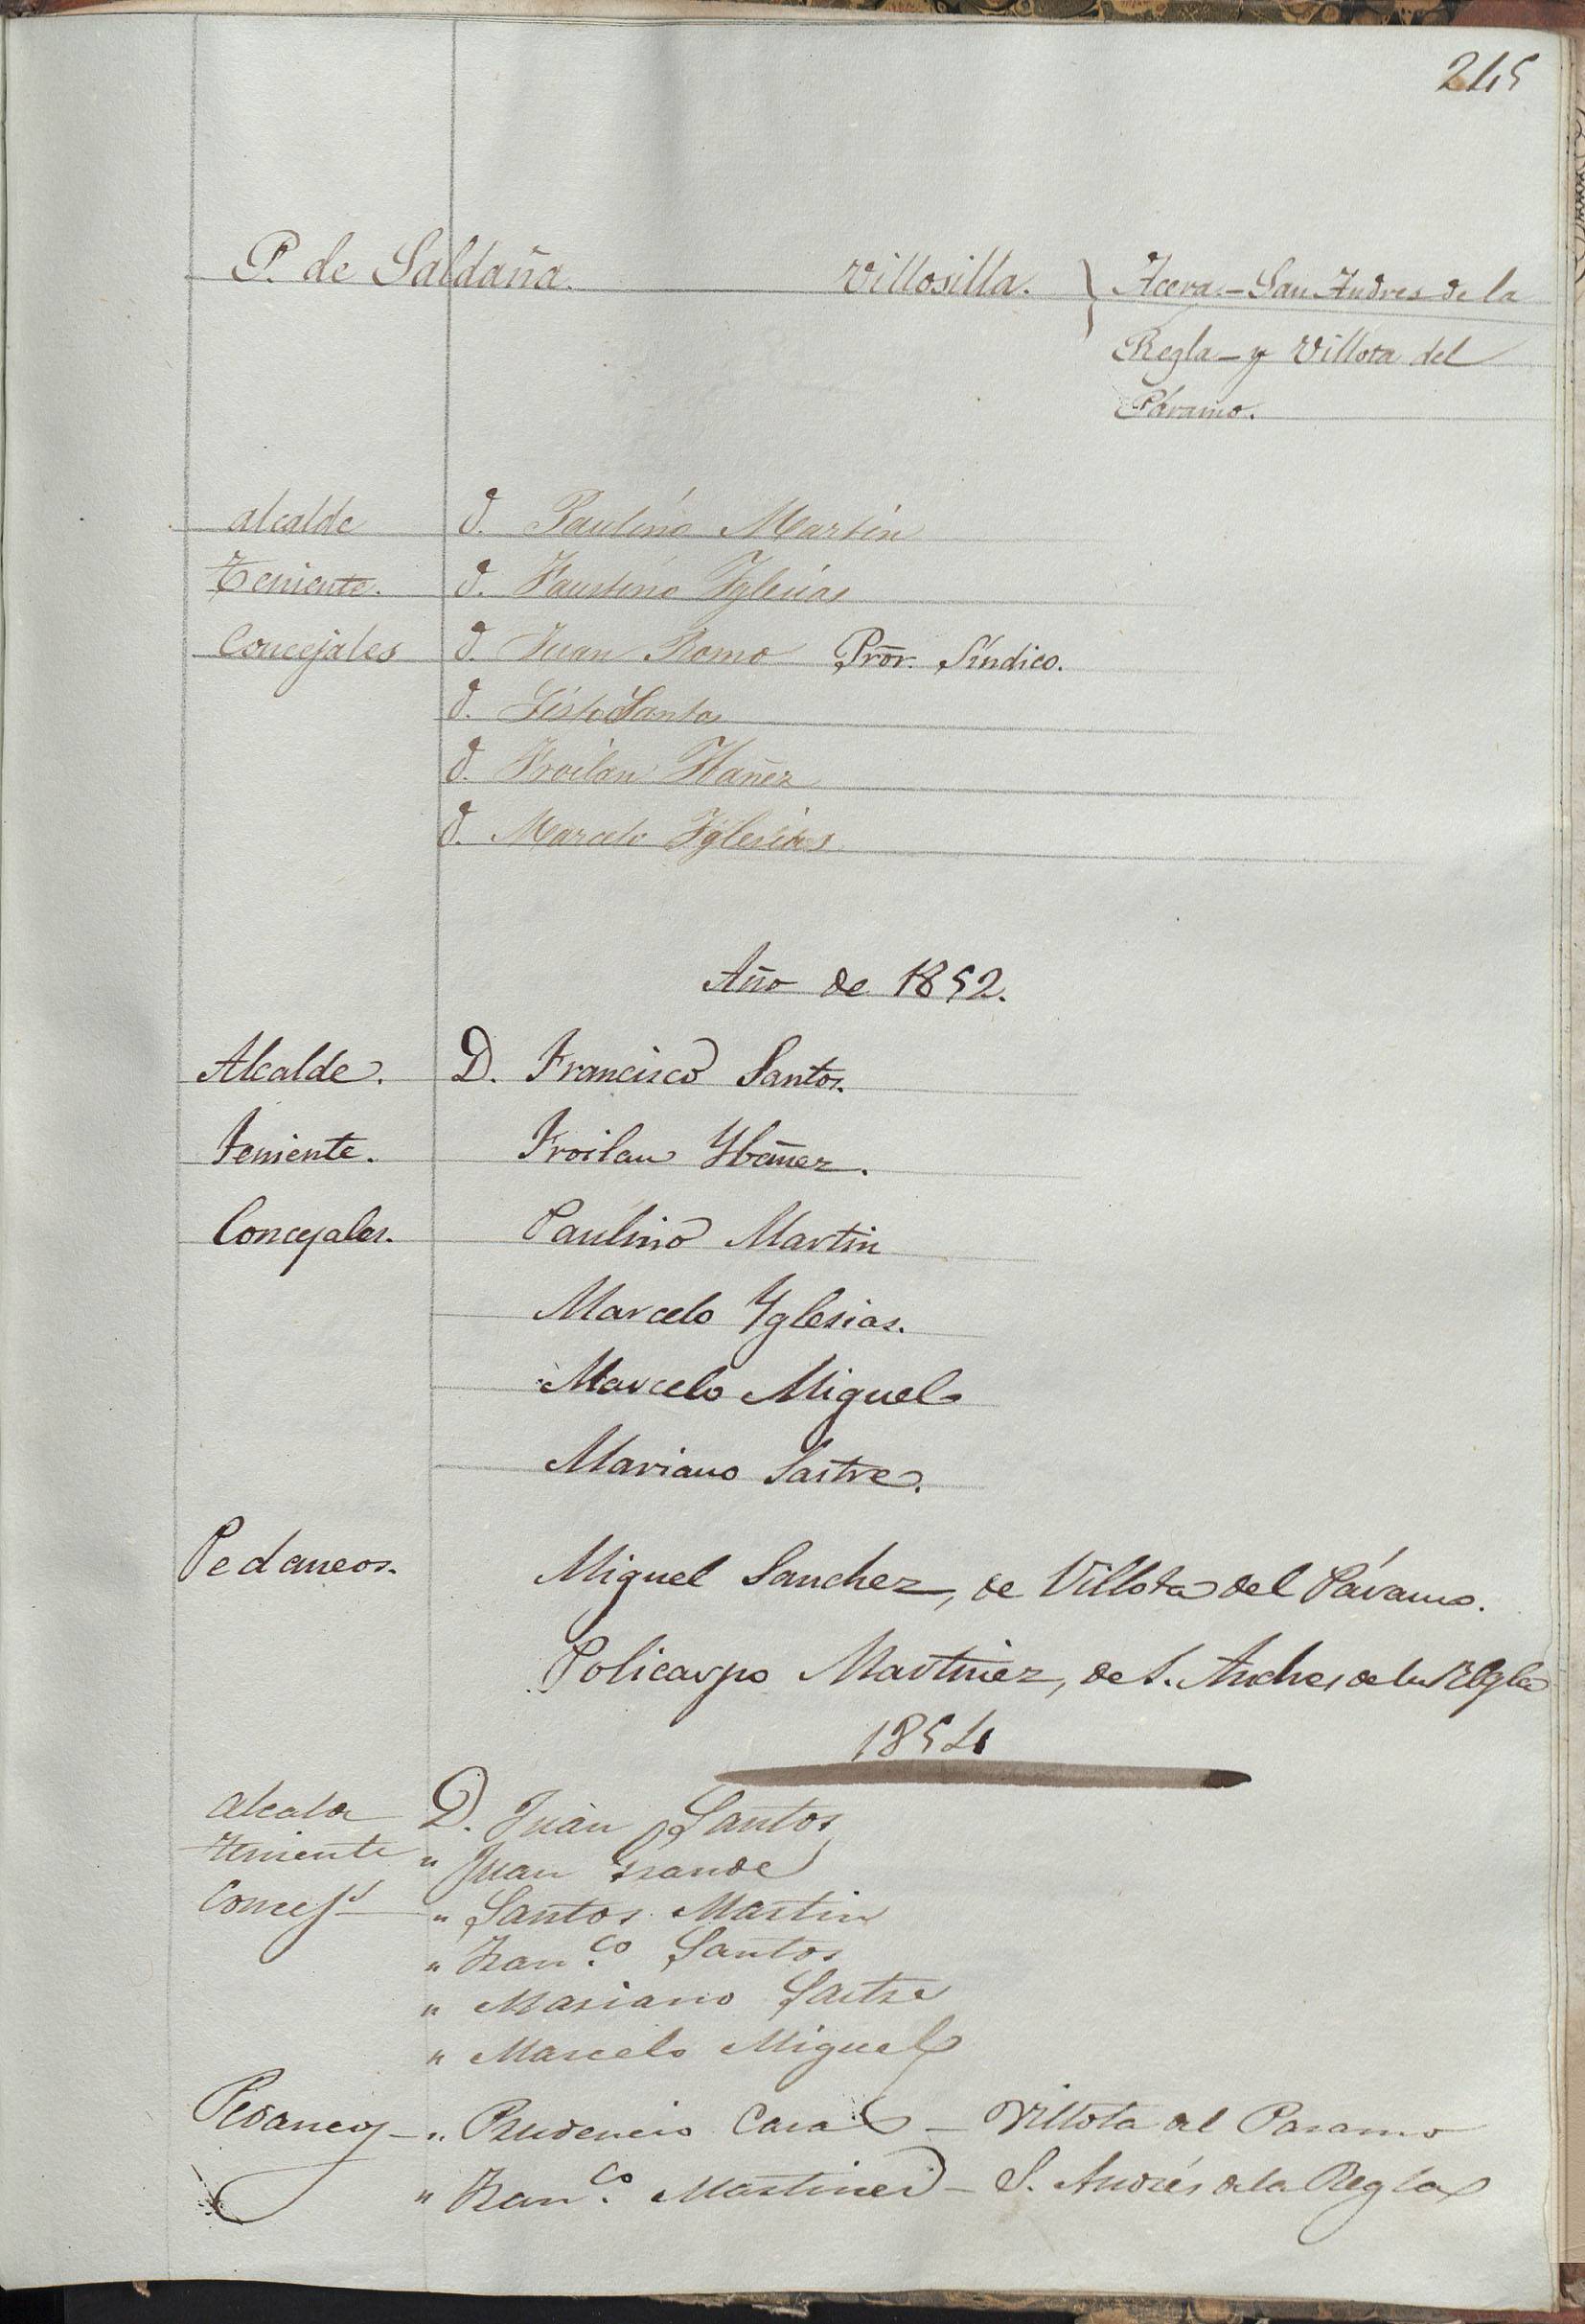 245
P. de Saldaña. Villosilla. } Acera.– San Andres de la
Regla – y Villota del
Páramo.
alcalde d. Paulino Martin
Teniente. d. Faustino Yglesias
Concejales d. Juan Romo Prōr. Síndico.
d. Sisto Santos
d. Froilan Ybañez
d. Marcelo Yglesias
Año de 1852.
Alcalde. D. Francisco Santos.
Teniente. Froilan Ybañez.
Concejales. Paulino Martin
Marcelo Yglesias.
Marcelo Miguel
Mariano Sastre.
Pedaneos. Miguel Sanchez, de Villota del Páramo.
Policarpo Martinez, de S. Andres de la Regla
1854
Alcalde D. Juan Santos
Teniente " Juan Grande
Concejs " Santos Martin
" Franco. Santos
" Mariano Sastre
" Marcelo Miguel
Pedaneos – " Prudencio Casas – Villota del Paramo
" Franco. Martinez – S. Andrés de la Regla